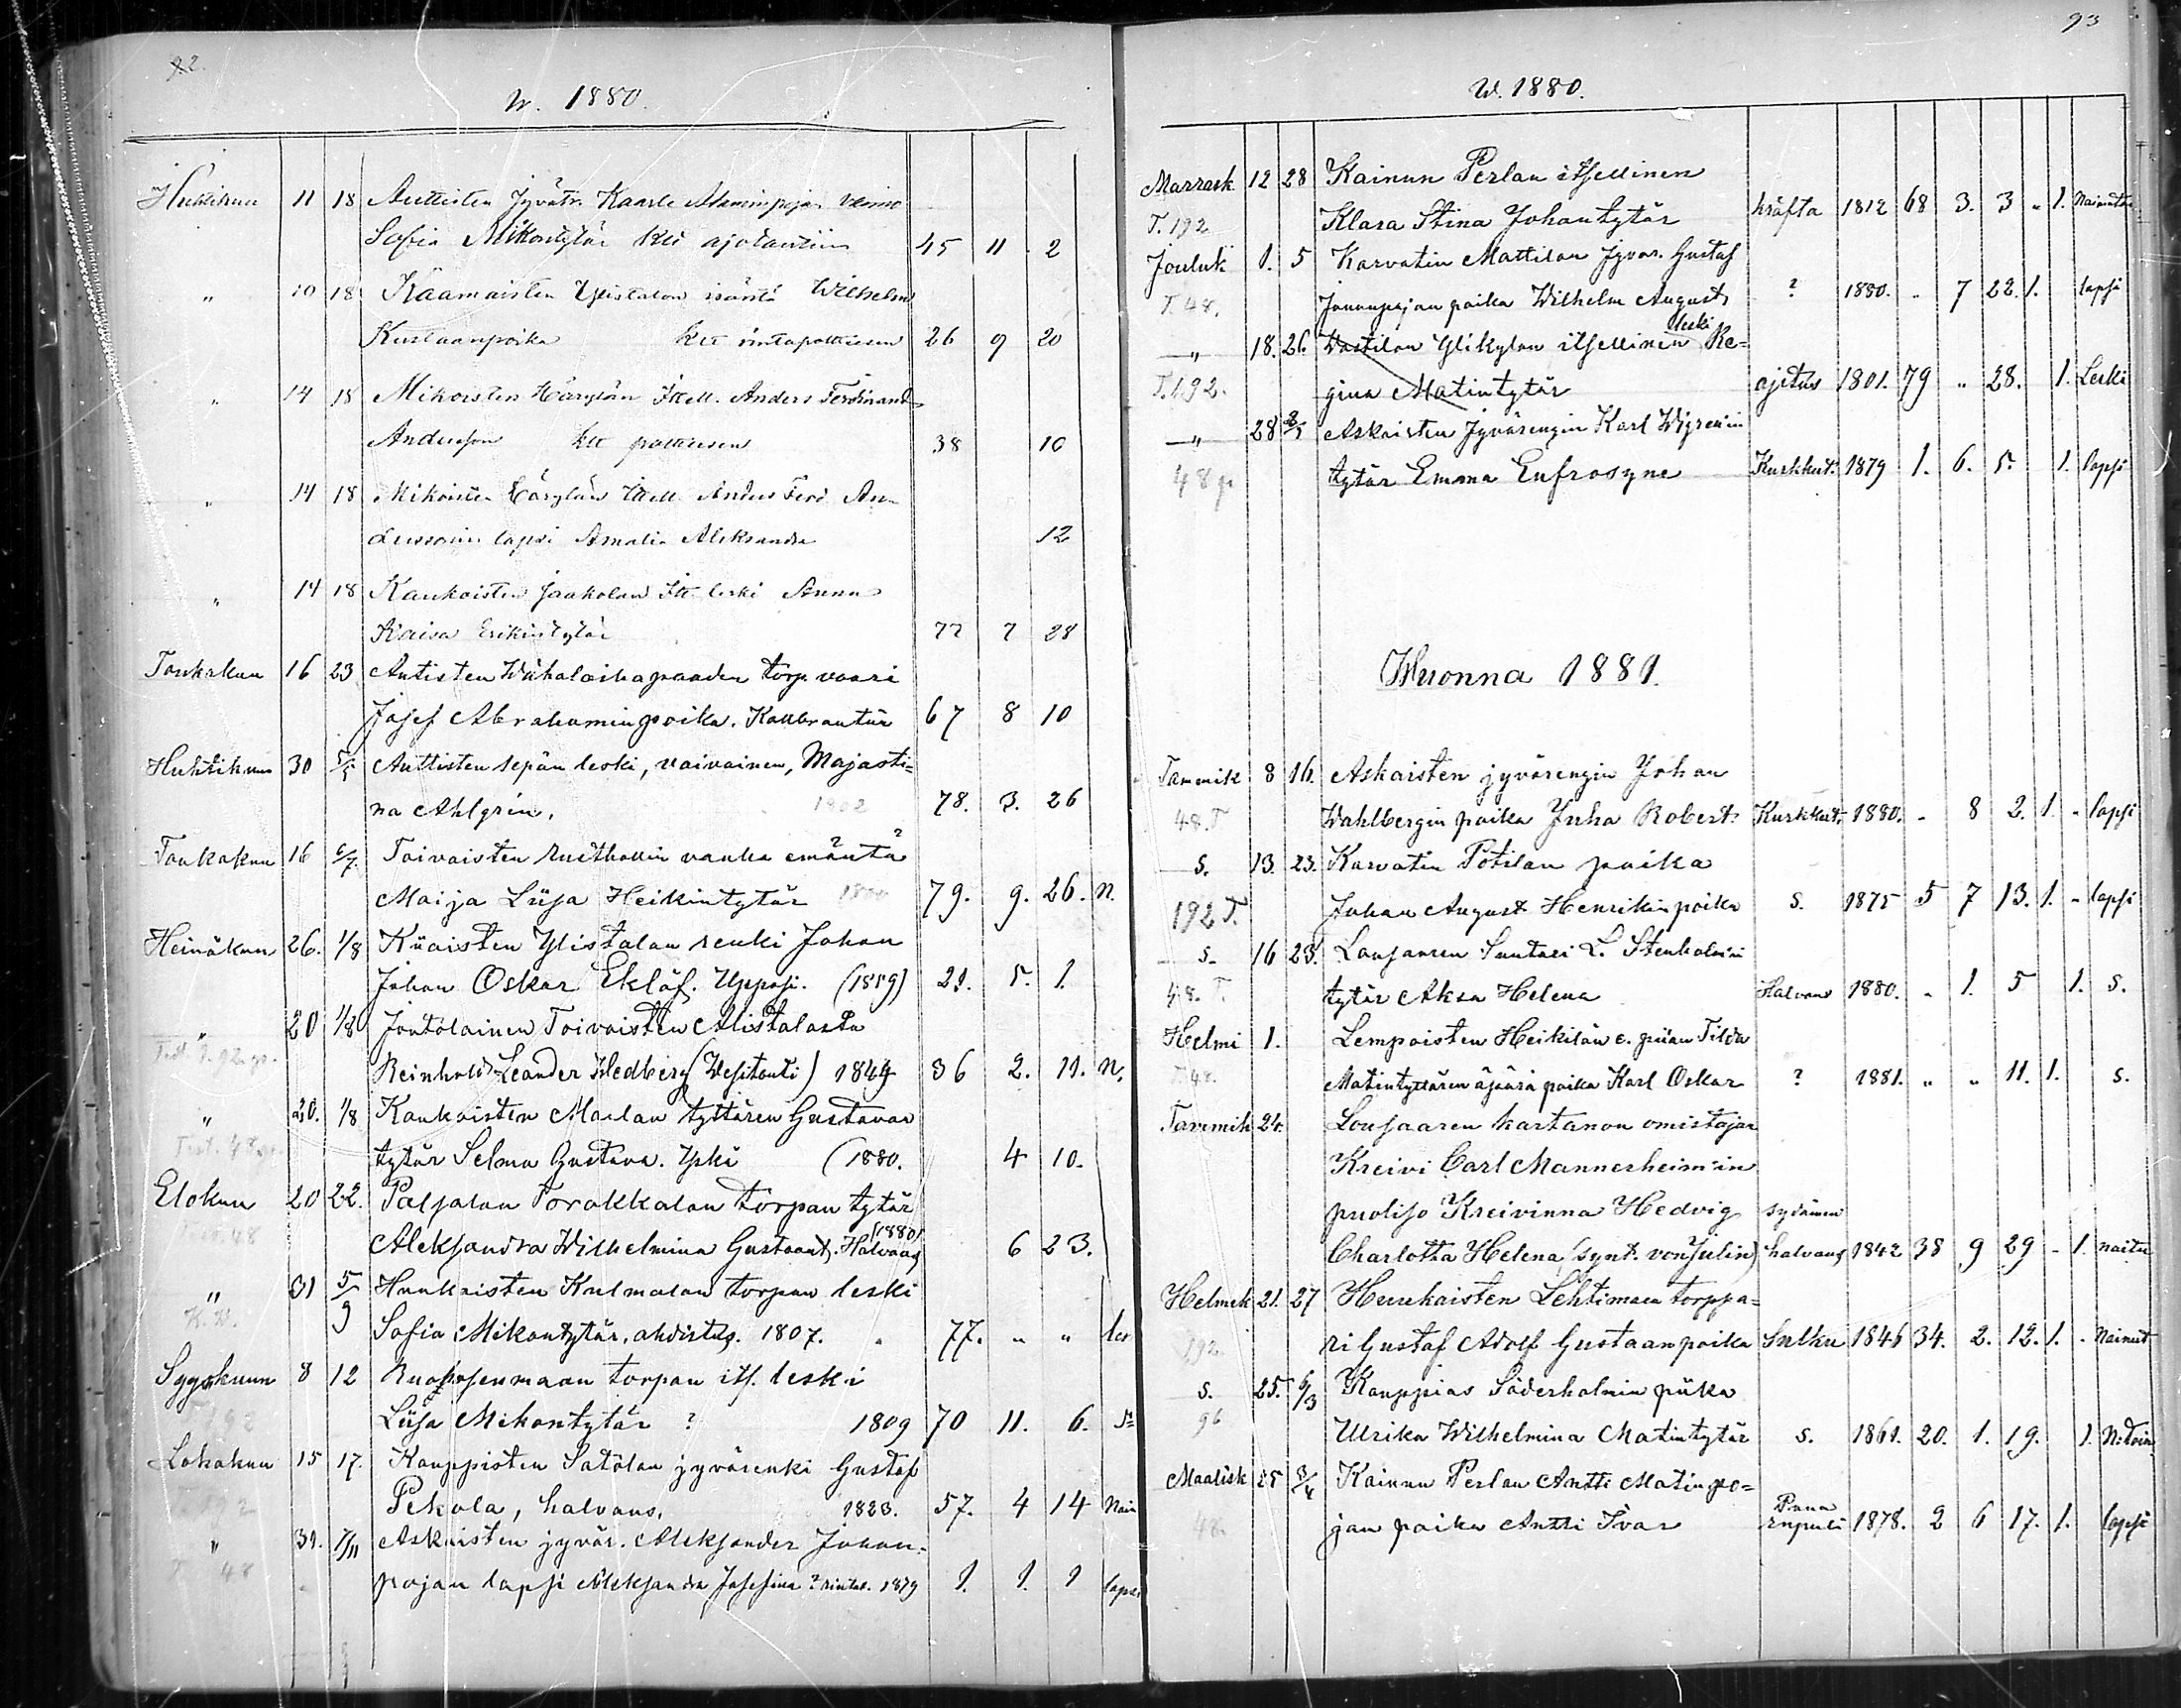 92.
W. 1880.
Huhtikuu 11 18 Auttisten Jyvätr. Kaarle Adaminpojan vaimo
Sofia Mikontytär ktt ajotautiin 45 11 2
" 10 18 Kaamaisten Ylistalon isäntä Wilhelm
Kustaanpoika ktt rintapolttiseen 26 9 20
" 14 18 Mikoisten Itsell. Anders Ferdinand
Andersson ktt polttiseen 38 10
" 14 18 Mikoisten Itsell Anders Ferd. An-
derssonin lapsi Amalia Aleksandra 12
" 14 18 Kaukoisten Jaakolan Its. leski Anna
Kaisa Erikintytär 77 7 28
Toukokuu 16 23 Antisten torp. vaari
Josef Abrahaminpoika. 67 8 10
Huhtikuu 30 5/5 Auttisten sepän leski, vaivainen, Majasti=
na Ahlgrén. 1802 78. 3. 26
Toukokuu 16 6/7. Toivaisten rusthollin vanha emäntä
Maija Liisa Heikintytär 79. 9. 26. N.
Heinäkuu 26. 1/8 Ylistalon renki Johan
Johan Oskar Eklöf. Upposi. (1859) 21. 5. 1.
" 20 1/8 Joutolainen Toivaisten Alistalosta
Reinhold Leander Hedberg (Wesitauti) 1844 36 2. 11. N.
" 20. 1/8 Kaukoisten tyttären Gustavan
Test. 48
tytär Selma Gustava. Yskä (1880. 4 10.
Elokuu 20 22. Paljalan Torakkalan torpan tytär
48
Aleksandra Wilhelmina Gustaant. Halvaus (1880) 6 23.
" 31 5/9 Hunkaisten Kulmalan torpan leski
K.W.
Sofia Mikontytär, ahdistus. 1807. 77. " " les
Syyskuun 8 12 torpan its. leski
192
Liisa Mikontytär ? 1809 70 11. 6. s=
Lokakuu 15 17. Kauppisten Satölan jyvärenki Gustaf
T. 192
Pekola, halvaus. 1823. 57. 4 14 Nain
" 31. 7/11 Askaisten jyvär. Aleksander Johan-
T 48
pojan lapsi Aleksandra Josefina ? rintat. 1879 1. 1. 1 lapsi
93
W. 1880.
Marrask 12 28 Kainun Perlan itsellinen
T. 192 Klara Stina Johantytär kräfta 1812 68 3. 3 " 1. Nainutta
Jouluk 1. 5 Karvatin Mattilan Jyvär. Gustaf
T. 48. Johanpojan poika Wilhelm August ? 1880. - 7 22. 1. lapsi
" 18. 26. Wastilan Ylikylan itsellinen leski Re=
T. 192. gina Matintytär ajetus 1801. 79 " 28. 1. Leski
" 28 2/1 Askaisten Jyvärengin Karl Wigrenin
48 p tytär Emma Eufrosyne Kurkkut. 1879 1. 6. 5. 1. lapsi
Wuonna 1881.
Tammik 8 16. Askaisten jyvärengin Johan
48. T Wahlbergin poika Juha Robert Kurkkut. 1880. - 8 2. 1. - lapsi
s. 13. 23. Karvatin Potilan poika
192 T. Johan August Henrikinpoika s. 1875 5 7 13. 1. - lapsi
s. 16 23. Lousaaren Suntari L. Stenholmin
48. T. tytär Aksa Helena Halvaus 1880. - 1. 5 1. s.
Helmi 1. Lempoisten Heikilän e. piian Tilda
T 48. Matintyttären äpärä poika Karl Oskar ? 1881. " " 11. 1. s.
Tammik 24. Lousaaren kartanon omistajan
Kreivi Carl Mannerheim'in
puoliso Kreivinna Hedvig sydämen
Charlotta Helena (synt. von Julin) halvaus 1842 38 9 29 - 1. naitu
Helmik 21. 27 Hunkaisten Lehtimaan torppa=
192 ri Gustaf Adolf Gustaanpoika Sulku 1846 34. 2. 12. 1. - Nainut
s. 25. 6/3 Kauppias Söderholmin piika
96 Ulrika Wilhelmina Matintytär s. 1861. 20. 1. 19. 1. N:toin
Maalisk 25 3/4 Kainun Perlan Antti Matinpo=
48. jan poika Antti Ivar Puna rupuli 1878. 2 6 17. 1. lapsi